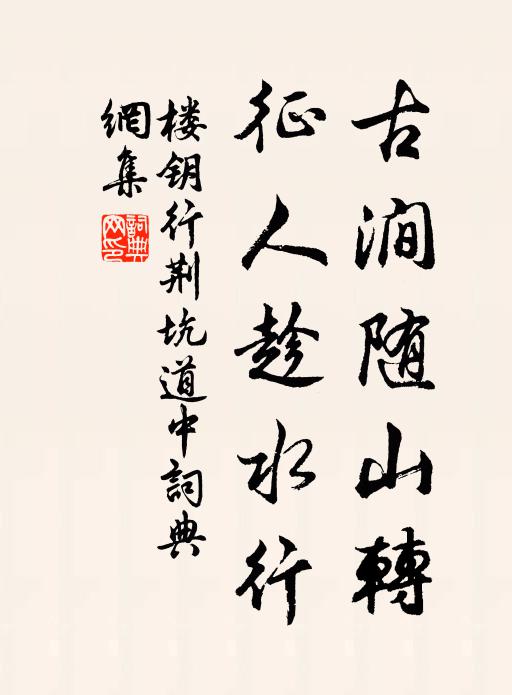 古涧随山轉
征人趁水行
楼钥行荆坑道中詞典
網集
詞典
网印